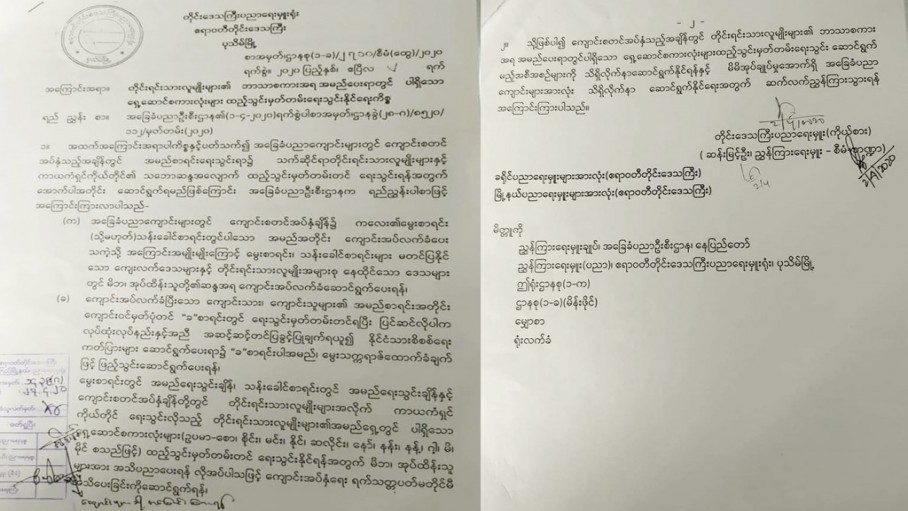 တိုင်းဒေသကြီးပညာရေးမှူးရုံး
ဧရာဝတီတိုင်းဒေသကြီး
ပုသိမ်မြို့
ရက်စွဲ။ ၂၀၂၀ ပြည့်နှစ်၊ ဧပြီလ ရက်
အကြောင်းအရာ။ တိုင်းရင်းသားလူမျိုးများ၏ ဘာသာစကားအရ အမည်ပေးရာတွင် ပါရှိသော
ရှေ့ဆောင်စကားလုံးများ ထည့်သွင်းမှတ်တမ်းရေးသွင်းနိုင်ရေးကိစ္စ
ရည် ညွှန်း စာ။ အခြေခံပညာဦးစီးဌာန၏(၁-၄-၂၀၂၀)ရက်စွဲပါစာအမှတ်၊ဌာနခွဲ(၂၈-ဂ)/၈၅၂၀/
၁၁၂/မှတ်တမ်း(၂၀၂၀)
၁။ အထက်အကြောင်းအရာပါကိစ္စနှင့်ပတ်သက်၍ အခြေခံပညာကျောင်းများတွင် ကျောင်းစတင်
အပ်နှံသည့်အချိန်တွင် အမည်စာရင်းရေးသွင်းရာ၌ သက်ဆိုင်ရာတိုင်းရင်းသားလူမျိုးများနှင့်
ကာယကံရှင်ကိုယ်တိုင်၏ သဘောဆန္ဒအလျောက် ထည့်သွင်းမှတ်တမ်းတင် ရေးသွင်းရန်အတွက်
အောက်ပါအတိုင်း ဆောင်ရွက်ရမည်ဖြစ်ကြောင်း အခြေခံပညာဦးစီးဌာနက ရည်ညွှန်းပါစာဖြင့်
အကြောင်းကြားလာပါသည်-
(က) အခြေခံပညာကျောင်းများတွင် ကျောင်းစတင်အပ်နှံချိန်၌ ကလေး၏မွေးစာရင်း
(သို့မဟုတ်)သန်းခေါင်စာရင်းတွင်ပါသော အမည်အတိုင်း ကျောင်းအပ်လက်ခံပေး
သကဲ့သို့ အကြောင်းအမျိုးမျိုးကြောင့် မွေးစာရင်း၊ သန်းခေါင်စာရင်းများ မတင်ပြနိုင်
သော ကျေးလက်ဒေသများနှင့် တိုင်းရင်းသားလူမျိုးအများစု နေထိုင်သော ဒေသများ
တွင် မိဘ၊ အုပ်ထိန်းသူတို့၏ဆန္ဒအရ ကျောင်းအပ်လက်ခံဆောင်ရွက်ပေးရန်၊
(ခ) ကျောင်းအပ်လက်ခံပြီးသော ကျောင်းသား၊ ကျောင်းသူများ၏ အမည်စာရင်းအတိုင်း
ကျောင်းဝင်မှတ်ပုံတင် "ခ"စာရင်းတွင် ရေးသွင်းမှတ်တမ်းတင်ရပြီး ပြင်ဆင်လိုပါက
လုပ်ထုံးလုပ်နည်းနှင့်အညီ အဆင့်ဆင့်တင်ပြခွင့်ပြုချက်ရယူ၍ နိုင်ငံသားစိစစ်ရေး
ကတ်ပြားများ ဆောင်ရွက်ပေးရာ၌ "ခ"စာရင်းပါအမည်၊ မွေးသက္ကရာဇ်ထောက်ခံချက်
ဖြင့် ဖြည့်သွင်းဆောင်ရွက်ပေးရန်၊
မွေးစာရင်းတွင် အမည်ရေးသွင်းချိန်၊ သန်းခေါင်စာရင်းတွင် အမည်ရေးသွင်းချိန်နှင့်
ကျောင်းစတင်အပ်နှံချိန်တို့တွင် တိုင်းရင်းသားလူမျိုးများအလိုက် ကာယကံရှင်
ကိုယ်တိုင် ရေးသွင်းလိုသည့် တိုင်းရင်းသားလူမျိုးများ၏အမည်ရှေ့တွင် ပါရှိသော
ရှေ့ဆောင်စကားလုံးများ(ဥပမာ-စော၊ စိုင်း၊ မင်း၊ နိုင်၊ ဆလိုင်း၊ နော်၊ နန်း၊ နန့်၊ ဂျါ၊ မိ၊
စသည်ဖြင့်) ထည့်သွင်းမှတ်တမ်းတင် ရေးသွင်းနိုင်ရန်အတွက် မိဘ၊ အုပ်ထိန်းသူ
များအား အသိပညာပေးရန် လိုအပ်ပါသဖြင့် ကျောင်းအပ်နှံရေး ရက်သတ္တပတ်မတိုင်မီ
အသိပေးခြင်းကိုဆောင်ရွက်ရန်၊
- ၂ -
၂။ သို့ဖြစ်ပါ၍ ကျောင်းအပ်နှံသည့်အချိန်တွင် တိုင်းရင်းသားလူမျိုးများ၏ ဘာသာစကား
အရ အမည်ပေးရာတွင်ပါရှိသော ရှေ့ဆောင်စကားလုံးများထည့်သွင်းမှတ်တမ်းရေးသွင်း ဆောင်ရွက်
မည့်အစီအစဉ်များကို သိရှိလိုက်နာဆောင်ရွက်နိုင်ရန်နှင့် မိမိအုပ်ချုပ်မှုအောက်ရှိ အခြေခံပညာ
ကျောင်းများအားလုံး သိရှိလိုက်နာ ဆောင်ရွက်နိုင်ရေးအတွက် ဆက်လက်ညွှန်ကြားသွားရန်
အကြောင်းကြားပါသည်။
တိုင်းဒေသကြီးပညာရေးမှူး(ကိုယ်စား)
(ဆန်းမြင့်ဦး၊ ညွှန်ကြားရေးမှူး - စီမံ/ဘဏ္ဍာ)
၂/၄/၂၀၂၀
ခရိုင်ပညာရေးမှူးများအားလုံး(ဧရာဝတီတိုင်းဒေသကြီး)
မြို့နယ်ပညာရေးမှူးများအားလုံး(ဧရာဝတီတိုင်းဒေသကြီး)
မိတ္တူကို
ညွှန်ကြားရေးမှူးချုပ်၊ အခြေခံပညာဦးစီးဌာန၊ နေပြည်တော်
ညွှန်ကြားရေးမှူး(ပညာ)၊ ဧရာဝတီတိုင်းဒေသကြီးပညာရေးမှူးရုံး၊ ပုသိမ်မြို့
ဤရုံးဌာနစု(၁-က)
ဌာနစု(၁-ခ)(မိန်းဖိုင်)
မျှောစာ
ရုံးလက်ခံ